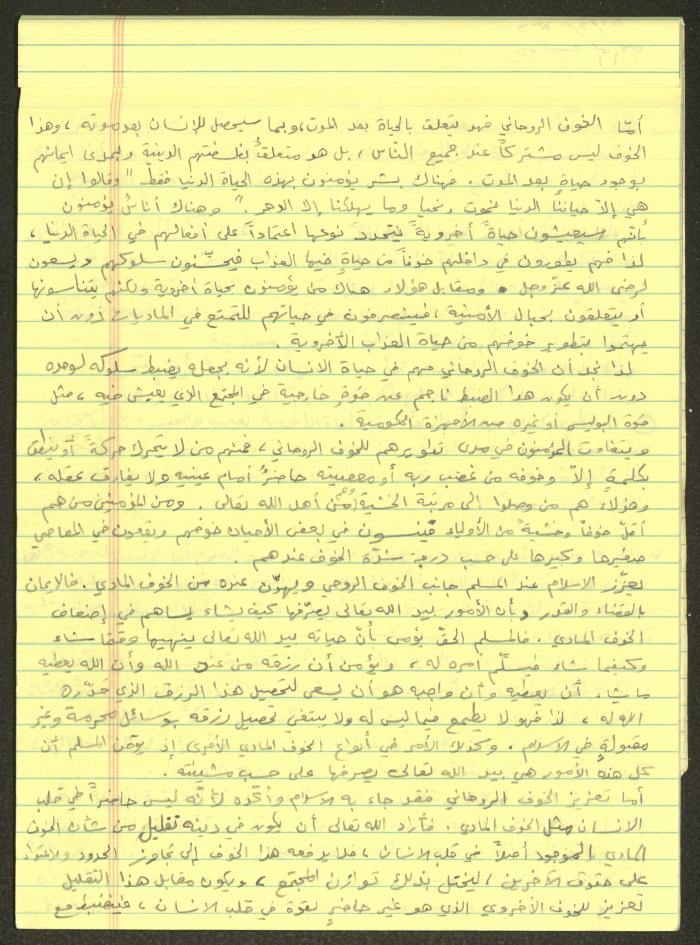 أمّا الخوف الروحاني فهو يتعلق بالحياة بعد الموت، وبما سيحصل للإنسان بعد موته، وهذا
الخوف ليس مشتركاً عند جميع النّاس، بل هو متعلقٌ بفلسفتهم الدينية وبمدى ايمانهم
بوجود حياةٍ بعد الموت. فهناك بشر يؤمنون بهذه الحياة الدنيا فقط "وقالوا إن
هي إلاّ حياتنا الدنيا نموت ونحيا وما يهلكنا إلا الدهر." وهناك أناسٌ يؤمنون
بأنّهم سيعيشون حياةً أخرويةً يتحدد نوعها اعتماداً على أفعالهم في الحياة الدنيا،
لذا فهم يطورون في داخلهم خوفاً من حياةٍ فيها العذاب فيحسّنون سلوكهم ويسعون
لرضى الله عزّ وجل. ومقابل هؤلاء هناك من يؤمنون بحياة أخروية ولكنهم يتناسونها
أو يتعلقون بحبال الأمنية، فينصرفون في حياتهم للتمتع في الماديات دون أن
يهتموا بتطوير خوفهم من حياة العذاب الأخروية.
لذا نجد أن الخوف الروحاني مهم في حياة الانسان لأنه يجعله يضبط سلوكه لوحده
دون أن يكون هذا الضبط ناجم عن قوةٍ خارجية في المجتمع الذي يعيش فيه، مثل
قوة البوليس أو غيره من الأجهزة الحكومية.
ويتفاوت المؤمنون في مدى تطويرهم للخوف الروحاني، فمنهم من لا يتحرك حركةً أو ينطق
بكلمةٍ إلاّ وخوفه من غضب ربه أو معصيته حاضرٌ أمام عينيه ولا يفارق عقله،
وهؤلاء هم من وصلوا إلى مرتبة الخشية وهم من أهل الله تعالى. ومن المؤمنين من هم
أقلّ خوفاً وخشيةً من الأولياء فينسون في بعض الأحيان خوفهم ويقعون في المعاصي
صغيرها وكبيرها على حسب درجة شدّة الخوف عندهم.
يعزّز الاسلام عند المسلم جانب الخوف الروحي ويهوّن عنده من الخوف المادي. فالإيمان
بالقضاء والقدر وبأن الأمور بيد الله تعالى يصرّفها كيف يشاء يساهم في إضعاف
الخوف المادي. فالمسلم الحقّ يؤمن بأنّ حياته بيد الله تعالى ينهيها وقتما شاء
وكيفما شاء فيسلّم أمره له، ويؤمن أن رزقه من عند الله وأن الله يعطيه
ما يشاء أن يعطيه وأن واجبه هو أن يسعى لتحصيل هذا الرزق الذي قدّره
الله له، لذا فهو لا يطمع فيما ليس له ولا يبتغي تحصيل رزقه بوسائل محرمة وغير
مقبولةٍ في الاسلام. وكذلك الأمر في أنواع الخوف المادي الأخرى إذ يؤمن المسلم أن
كل هذه الأمور هي بيد الله تعالى يصرفها على حسب مشيئته.
أما تعزيز الخوف الروحاني فقد جاء به الاسلام وأكّده لأنّه ليس حاضراً في قلب
الانسان مثل الخوف المادي. فأراد الله تعالى أن يكون في دينه تقليل من شأن الخوف
المادي الموجود أصلاً في قلب الانسان، فلا يدفعه هذا الخوف إلى تجاوز الحدود والاعتداء
على حقوق الآخرين، ليختل بذلك توازن المجتمع، ويكون مقابل هذا التقليل
تعزيز للخوف الأخروي الذي هو غير حاضرٍ بقوة في قلب الانسان، فينضبط مع